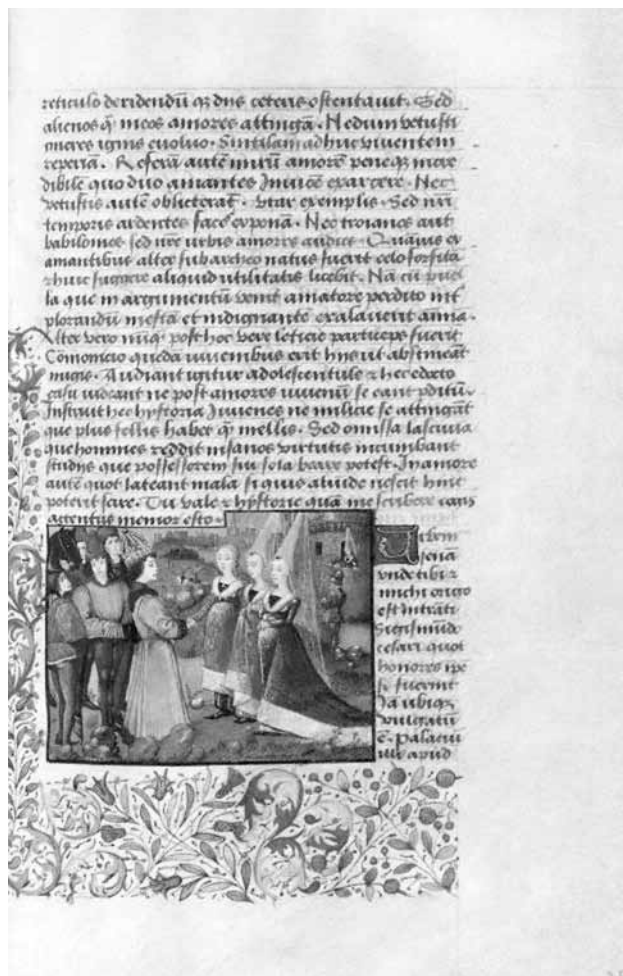 reticulo deridendū qȝ dn̄s ceteris ostentauit. Sed
alienos q̄ meos amores attingā. Nedum vetusti
cineres ignis euoluo. Sintilam adhuc viventem
reperiā. Referā autē mirū amorē peneqȝ incre
dibilē quo duo amantes Inuicē exarcere. Nec
vetustis autē oblicteratꝭ. vtar exemplis. Sed nr̄i
temporis ardentes faces exponā. Nec troianos aut
babilonios sed nr̄e urbis amores audies. Quāuis ex
amantibus alter sub archeo natus fuerit celo forsitā
⁊ huic suggere aliquid utilitatis licebit. Nā cū puel
la que in argumentū venit amatore perdito int̄
plorandū mesta et indignantē exalauerit animā.
Alter vero nūqȝ post hec vere leticie particeps fuerit
Comonicio quedā iuuenibus erit hijs ut abstineāt
nugis. Audiant igitur adolescentule ⁊ hec edocto
casu videant ne post amores iuuenū se eant p̄ditū.
Instruit hec hystoria Iuuenes ne milicie se attingāt
que plus fellis habet q̄ mellis. Sed omissa lasciuia
que homines reddit insanos virtutis incumbant
studijs que possessorem sui sola beare potest. In amore
autē quot lateant mala si quis aliude nescit hinc
poterit scire. Tu vale ⁊ hystorie quā me scribere
attentus memor esto.
Urbem
senā
vnde tibi ⁊
michi origo
est Intrāti
Sigismūdo
cesari quot
honores
si fuerint
Ia ubiqȝ
vulgatū
ē. Palaciū
illi apud